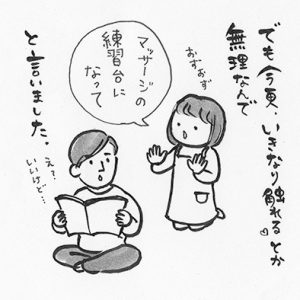 でも今更、いきなり触れるとか
無理なんで
おずおず
マッサージの
練習台に
なって
と言いました。
え?
いいけど…